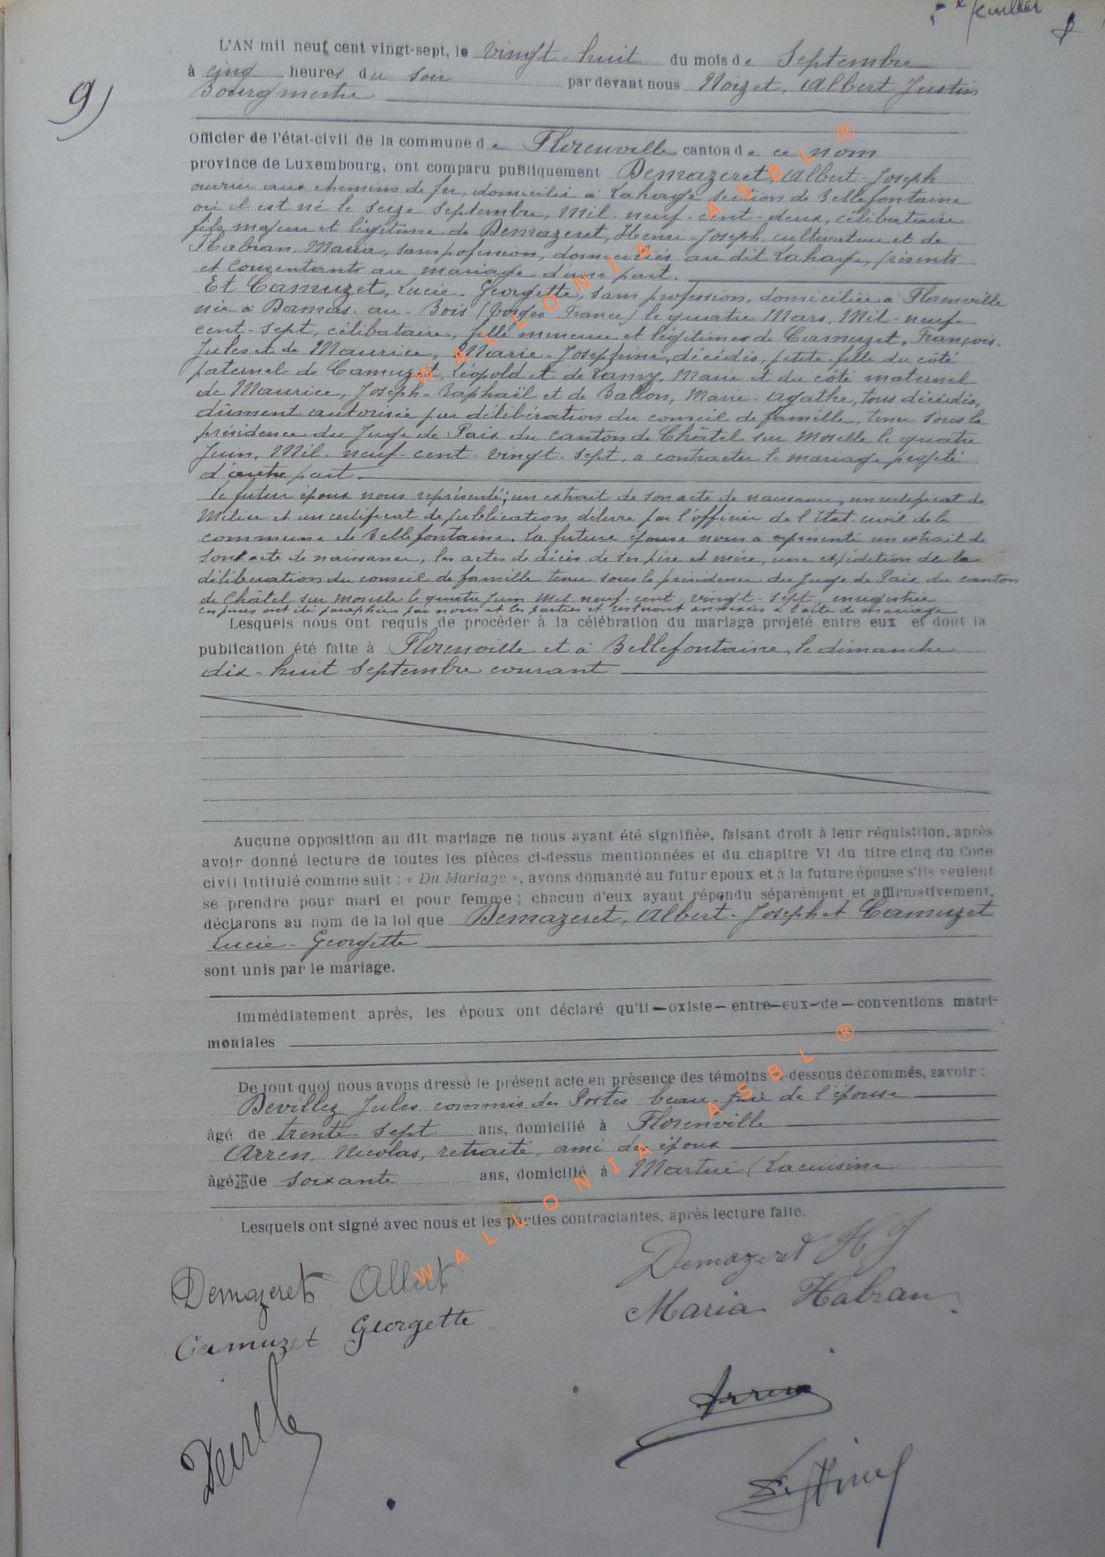 5e feuillet
9)
L'AN mil neuf cent vingt-sept, le vingt huit du mois de Septembre
à cinq heures du soir par devant nous Noizet, Albert Justin
Bourgmestre
Officier de l'état-civil de la commune de Florenville canton de ce nom
province de Luxembourg, ont comparu publiquement Demazeret, Albert-Joseph
ouvrier aux chemins de fer, domicilié à Lahage section de Bellefontaine
où il est né le seize Septembre, Mil-neuf-cent-deux, célibataire
fils majeur et légitime de Demazeret, Henri-Joseph, cultivateur et de
Habran, Maria, sans profession, domiciliés au dit Lahage, présents
et consentants au mariage d'une part.
Et Camuzet, Lucie-Georgette, sans profession, domiciliée à Florenville
née à Damas-au-Bois (Vosges France) le quatre Mars, Mil-neuf-
cent-sept, célibataire, fille mineure et légitime de Camuzet, François-
Jules et de Maurice, Marie-Joséphine, décédés, petite-fille du côté
paternel de Camuzet, Léopold et de Lamy, Marie et du côté maternel
de Maurice, Joseph-Raphaël et de Ballon, Marie-Agathe, tous décédés,
dûment autorisée par délibération du conseil de famille, tenu sous la
présidence du Juge de Paix du canton de Châtel sur Moselle le quatre
Juin, Mil-neuf-cent-vingt-sept, a contracter le mariage projeté
d'autre part
Le futur époux nous représenté; un extrait de son acte de naissance, un certificat de
Milice et un certificat de publication délivré par l'officier de l'Etat civil de la
commune de Bellefontaine. La future épouse nous a représenté un extrait de
son acte de naissance, les actes de décès de ses père et mère, une expédition de la
délibération du conseil de famille tenu sous la présidence du Juge de Paix du canton
de Châtel sur Moselle le quatre Juin Mil-neuf-cent-vingt-sept, enregistrée
Les pièces ont été paraphées par nous et les parties et resteront annexées à l'acte de mariage
Lesquels nous ont requis de procéder à la célébration du mariage projeté entre eux et dont la
publication été faite à Florenville et à Bellefontaine, le dimanche
dix-huit Septembre courant
Aucune opposition au dit mariage ne nous ayant été signifiée, faisant droit à leur réquisition, après
avoir donné lecture de toutes les pièces ci-dessus mentionnées et du chapitre VI du titre cinq du Code
civil intitulé comme suit : « Du Mariage », avons demandé au futur époux et à la future épouse s'ils veulent
se prendre pour mari et pour femme ; chacun d'eux ayant répondu séparément et affirmativement,
déclarons au nom de la loi que Demazeret, Albert-Joseph et Camuzet
Lucie-Georgette
sont unis par le mariage.
Immédiatement après, les époux ont déclaré qu'il existe entre eux de conventions matri-
moniales
De tout quoi nous avons dressé le présent acte en présence des témoins ci-dessous dénommés, savoir :
Devillez Jules commis des Postes beau-frère de l'épouse
âgé de trente sept ans, domicilié à Florenville
Arren, Nicolas, retraité, ami de époux
âgé de soixante ans, domicilié à Martué (Lacuisine
Lesquels ont signé avec nous et les parties contractantes, après lecture faite.
Demazeret Albert
Demazeret H J
Camuzet Georgette
Maria Habran
Arren
WALLONIA ASBL ®
WALLONIA ASBL ®